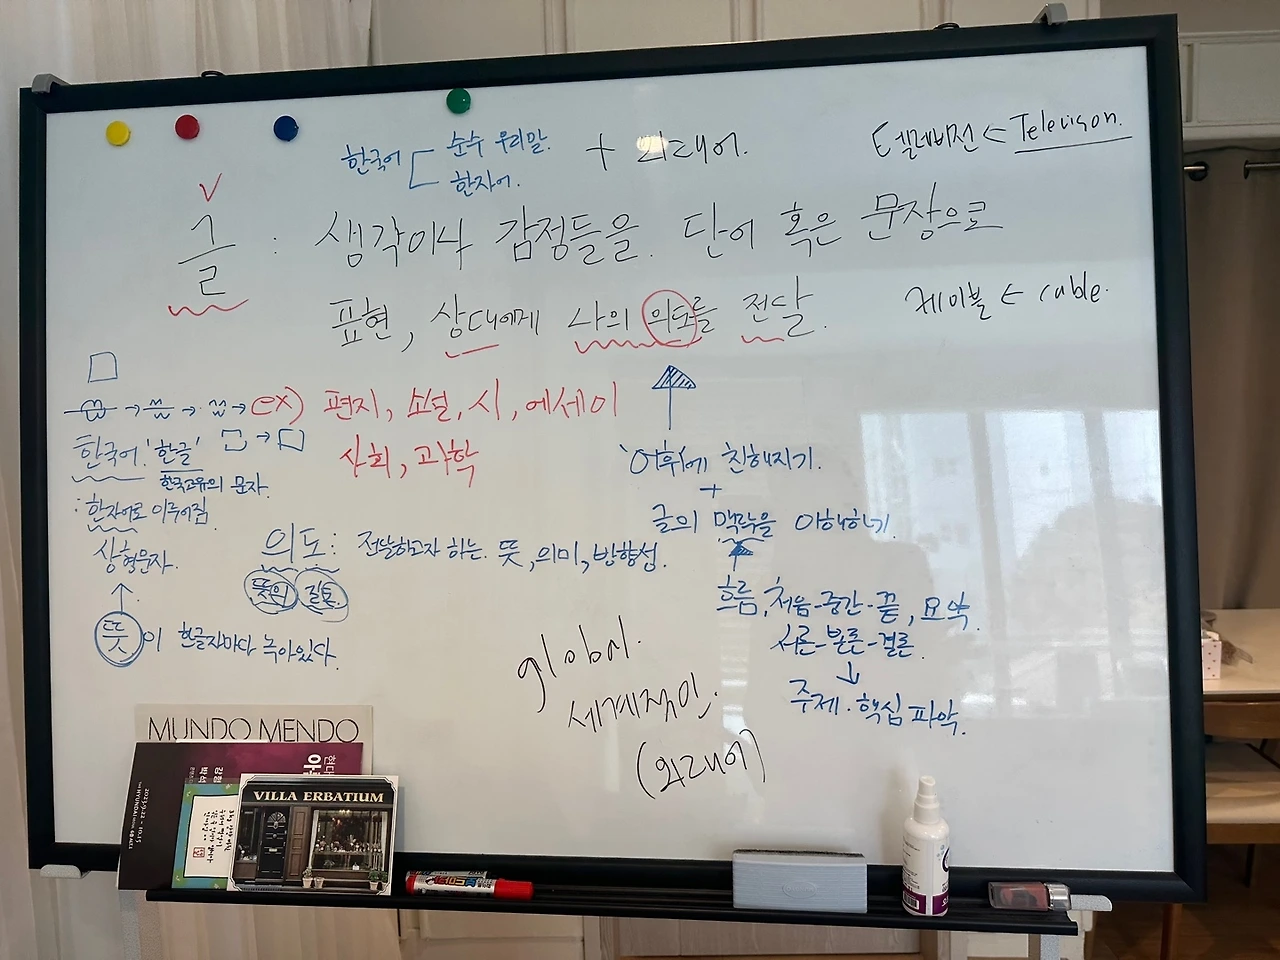 한국어 순수 우리말. + 외래어.
한자어.
텔레비전 ← Televison.
글 : 생각이나 감정들을. 단어 혹은 문장으로
표현, 상대에게 나의 의도를 전달.
케이블 ← cable.
ex) 편지, 소설, 시, 에세이
사회, 과학
한국어. '한글'
한국고유의 문자.
: 한자어로 이루어짐.
상형문자.
↑
뜻이 한글자마다 녹아있다.
의도: 전달하고자 하는. 뜻, 의미, 방향성.
어휘에 친해지기.
+
글의 맥락을 이해하기.
흐름, 처음-중간-끝, 요약.
서론-본론-결론.
↓
주제. 핵심 파악.
global.
세계적인.
(외래어)
MUNDO MENDO
VILLA ERBATIUM